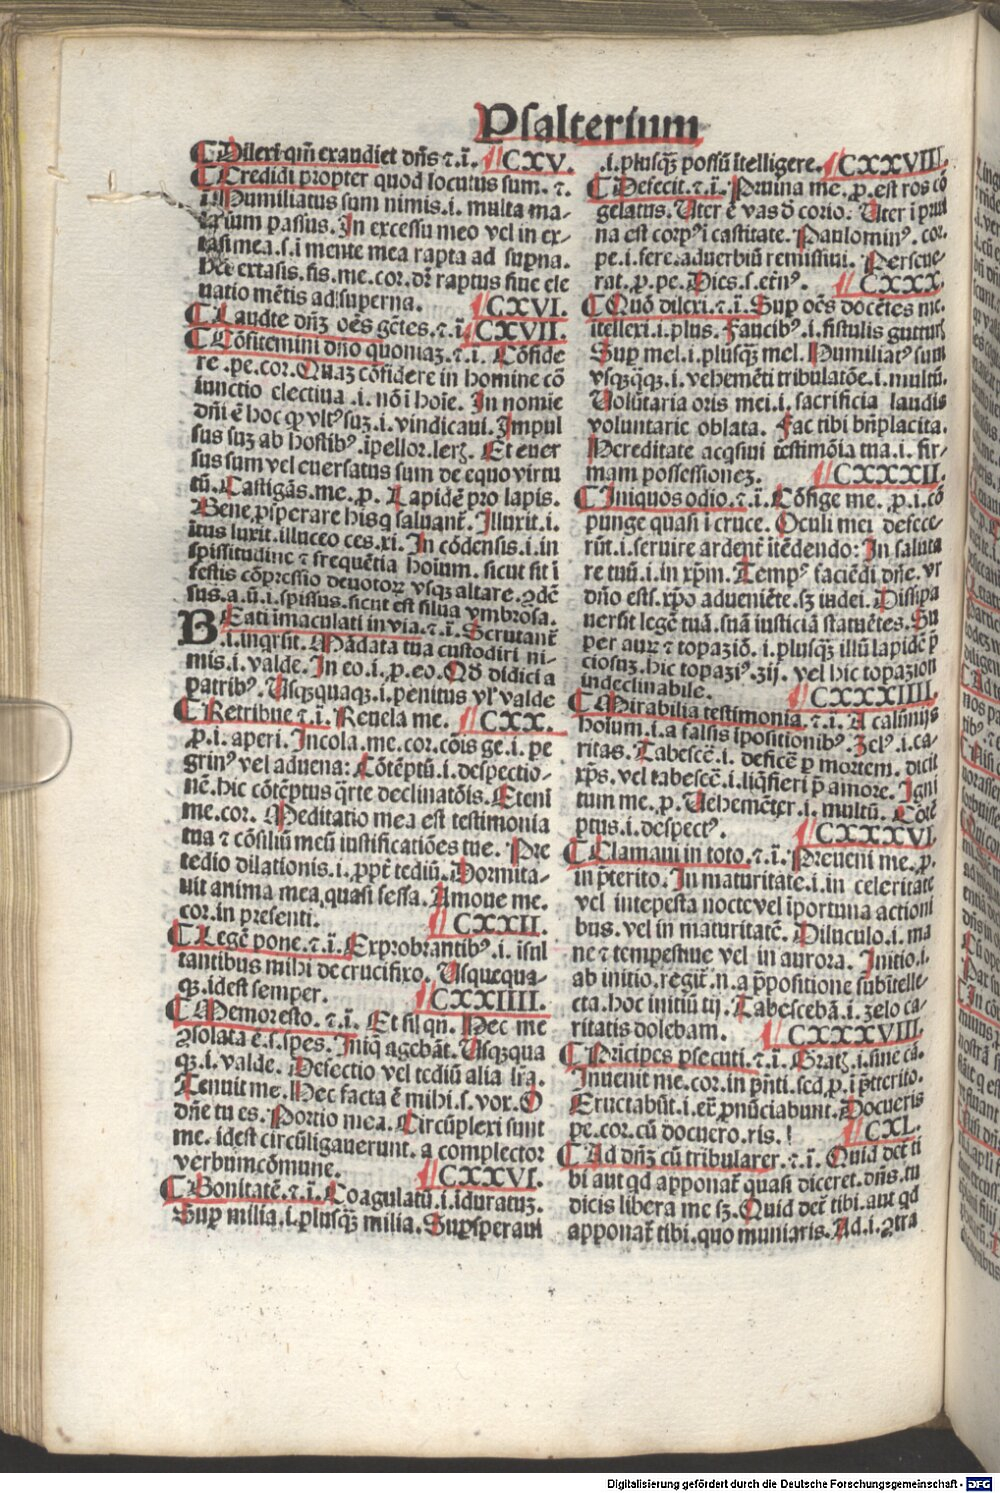 Psalterium
¶Dilexi qm̄ exaudiet dn̄s ⁊.ī. CXV.
¶Credidi propter quod locutus sum. ⁊.
i. Humiliatus sum nimis.i. multa ma-
la sum passus. In excessu meo vel in ex-
tasi mea.s.i mente mea rapta ad sup̄na.
Hec extasis.sis.me.cor.dr̄ raptus siue ele
uatio mētis ad superna. CXVI.
¶Laudte dn̄ꝫ oēs gētes.⁊.ī. CXVII.
¶Cōfitemini dno quoniaꝫ.⁊.i. Cōfide
re.pe.cor.Quaꝫ cōfidere in homine cō
iunctio electiua .i. nō i hoīe. In nomīe
dn̄i ē hoc ꝙ vltꝰ suꝫ.i. vindicaui. Impul
sus suꝫ ab hostibꝰ.ipellor.lerꝭ. Et euer
sus sum vel euersatus sum de equo virtu
tū. Castigās.me.ꝑ. Lapidē pro lapis.
Bene ꝓsperare hisq saluant̄. Illuxit.i.
itus luxit.illuceo ces.xi. In cōdensis.i.in
spissitudine ⁊ frequētia hoīum. sicut fit i
festis cōpressio deuotoꝝ vsqꝫ altare. ꝯdē
sus.a.ū.i.spissus.sicut est silua vmbrosa.
BEati imaculati in via.⁊.ī. Scrutant̄
.i.inqrsit. Mādata tua custodiri ni-
mis.i.valde. In eo.i.ꝓ.eo. Qd̄ didici a
patribꝰ. Usqꝫquaqꝫ.i.penitus vl' valde
¶Retribue ⁊.ī. Reuela me. CXX.
ꝓ.i. aperi. Incola.me.cor.cōis ge.i. pe
grinꝰ vel aduena: Cōtēptū.i.despectio-
nē.hic cōtēptus q̄rte declinatōis. Etenī
me.cor. Meditatio mea est testimonia
tua ⁊ cōsiliū meū iustificatiōes tue. Pre
tedio dilationis.i.ꝓpt̄ tediū. Dormita-
uit anima mea quasi fessa. Amoue me.
cor.in presenti. CXXII.
¶Legē pone.⁊.ī. Exprobrantibꝰ.i. isul
tantibus mihi de crucifixo. Usquequa-
qꝫ.idest semper. CXXIIII.
¶Memoresto.⁊.ī. Et sil qn̄. Hec me
ꝯsolata ē.s.spes. Iniq̄ agebāt. Usqꝫqua
qꝫ.i.valde. Defectio vel tediū alia lr̄a.
Tenuit me. Hec facta ē mihi.s.vox. O
dn̄e tu es. Portio mea. Circūplexi sunt
me. idest circūligauerunt. a complector
verbum cōmune. CXXVI.
¶Bonitatē.⁊.ī. Coagulatū.i.iduratuꝫ.
Sup̄ milia.i.plusqꝫ̄ milia. Sup̄speraui
.i.plusqꝫ̄ possū ītelligere. CXXVIII.
¶Defecit.⁊.ī. Pruina me.ꝓ.est ros cō
gelatus. Uter ē vas d̄ corio. Uter i prui
na est corpꝰ i castitate. Paulominꝰ.cor.
pe.i.fere.aduerbiū remissiui. Perseue-
rat.ꝓ.pe. Dies.s.etn̄ꝰ. CXXX.
¶Quō dilexi.⁊.ī. Sup̄ oēs docētes me.
itellexi.i.plus. Faucibꝰ.i.fistulis gutturꝭ
Sup̄ mel.i.plusqꝫ̄ mel. Humiliatꝰ sum
vsqꝫq̄qꝫ.i.vehemēti tribulatōe.i.multū.
Volūtaria oris mei.i. sacrificia laudis
voluntarie oblata. Fac tibi bn̄placita.
Hereditate acqsiui testimōia tua.i. fir-
mam possessioneꝫ. CXXXII.
¶Iniquos odio.⁊.ī. Cōfige me.ꝓ.i.cō
punge quasi i cruce. Oculi mei defece-
rūt.i.seruire ardent̄ itēdendo: In saluta
re tuū.i.in xp̄m. Tempꝰ faciēdi dn̄e. vr
dn̄o est s.xp̄o adueniēte.sꝫ iudei. Dissipa
uerūt legē tuā.suā iusticiā statuētes. Su
per auꝝ ⁊ topaziō. i.plusqꝫ illū lapidē p̄
ciosuꝫ.hic topaziꝰ.zij. vel hic topazion
indeclinabile. CXXXIIII.
¶Mirabilia testimonia.⁊.i. A calūnijs
hoīum.i.a falsis ipositionibꝰ. Zelꝰ.i.ca-
ritas. Tabescē.i. deficē ꝑ mortem. dicit
xp̄s. vel tabescē.i. liq̄fieri p̄ amore. Igni
tum me.ꝓ. Uehemēter.i. multū. Cōtē
ptus.i.despectꝰ. CXXXVI.
¶Clamaui in toto.⁊.ī. Preueni me.ꝓ.
in p̄terito. In maturitate.i.in celeritate
vel intēpesta nocte vel īportuna actioni
bus. vel in maturitatē. Diluculo.i. ma
ne ⁊ tempestiue vel in aurora. Initio.i.
ab initio. regit̄.n.a p̄positione subītelle-
cta.hoc initiū tij. Tabescebā.i.zelo ca-
ritatis dolebam. CXXXVIII.
¶Prīcipes ꝑsecuti.⁊.ī. Gratꝭ.i.sine cā.
Inuenit me.cor.in p̄nti.scd̄ ꝓ.i p̄terito.
Eructabūt.i.er̄ ꝓnūciabunt. Docueris
pe.cor.cū docuero.ris. CXL.
¶Ad dn̄ꝫ cū tribularer.⁊.ī. Quid det̄ ti
bi aut qd apponat̄ quasi diceret.dn̄s.tu
dicis libera me sꝫ. Quid det̄ tibi.aut qd
apponat̄ tibi.quo muniaris. Ad.i.ꝯtra
Digitalisierung gefördert durch die Deutsche Forschungsgemeinschaft - DFG